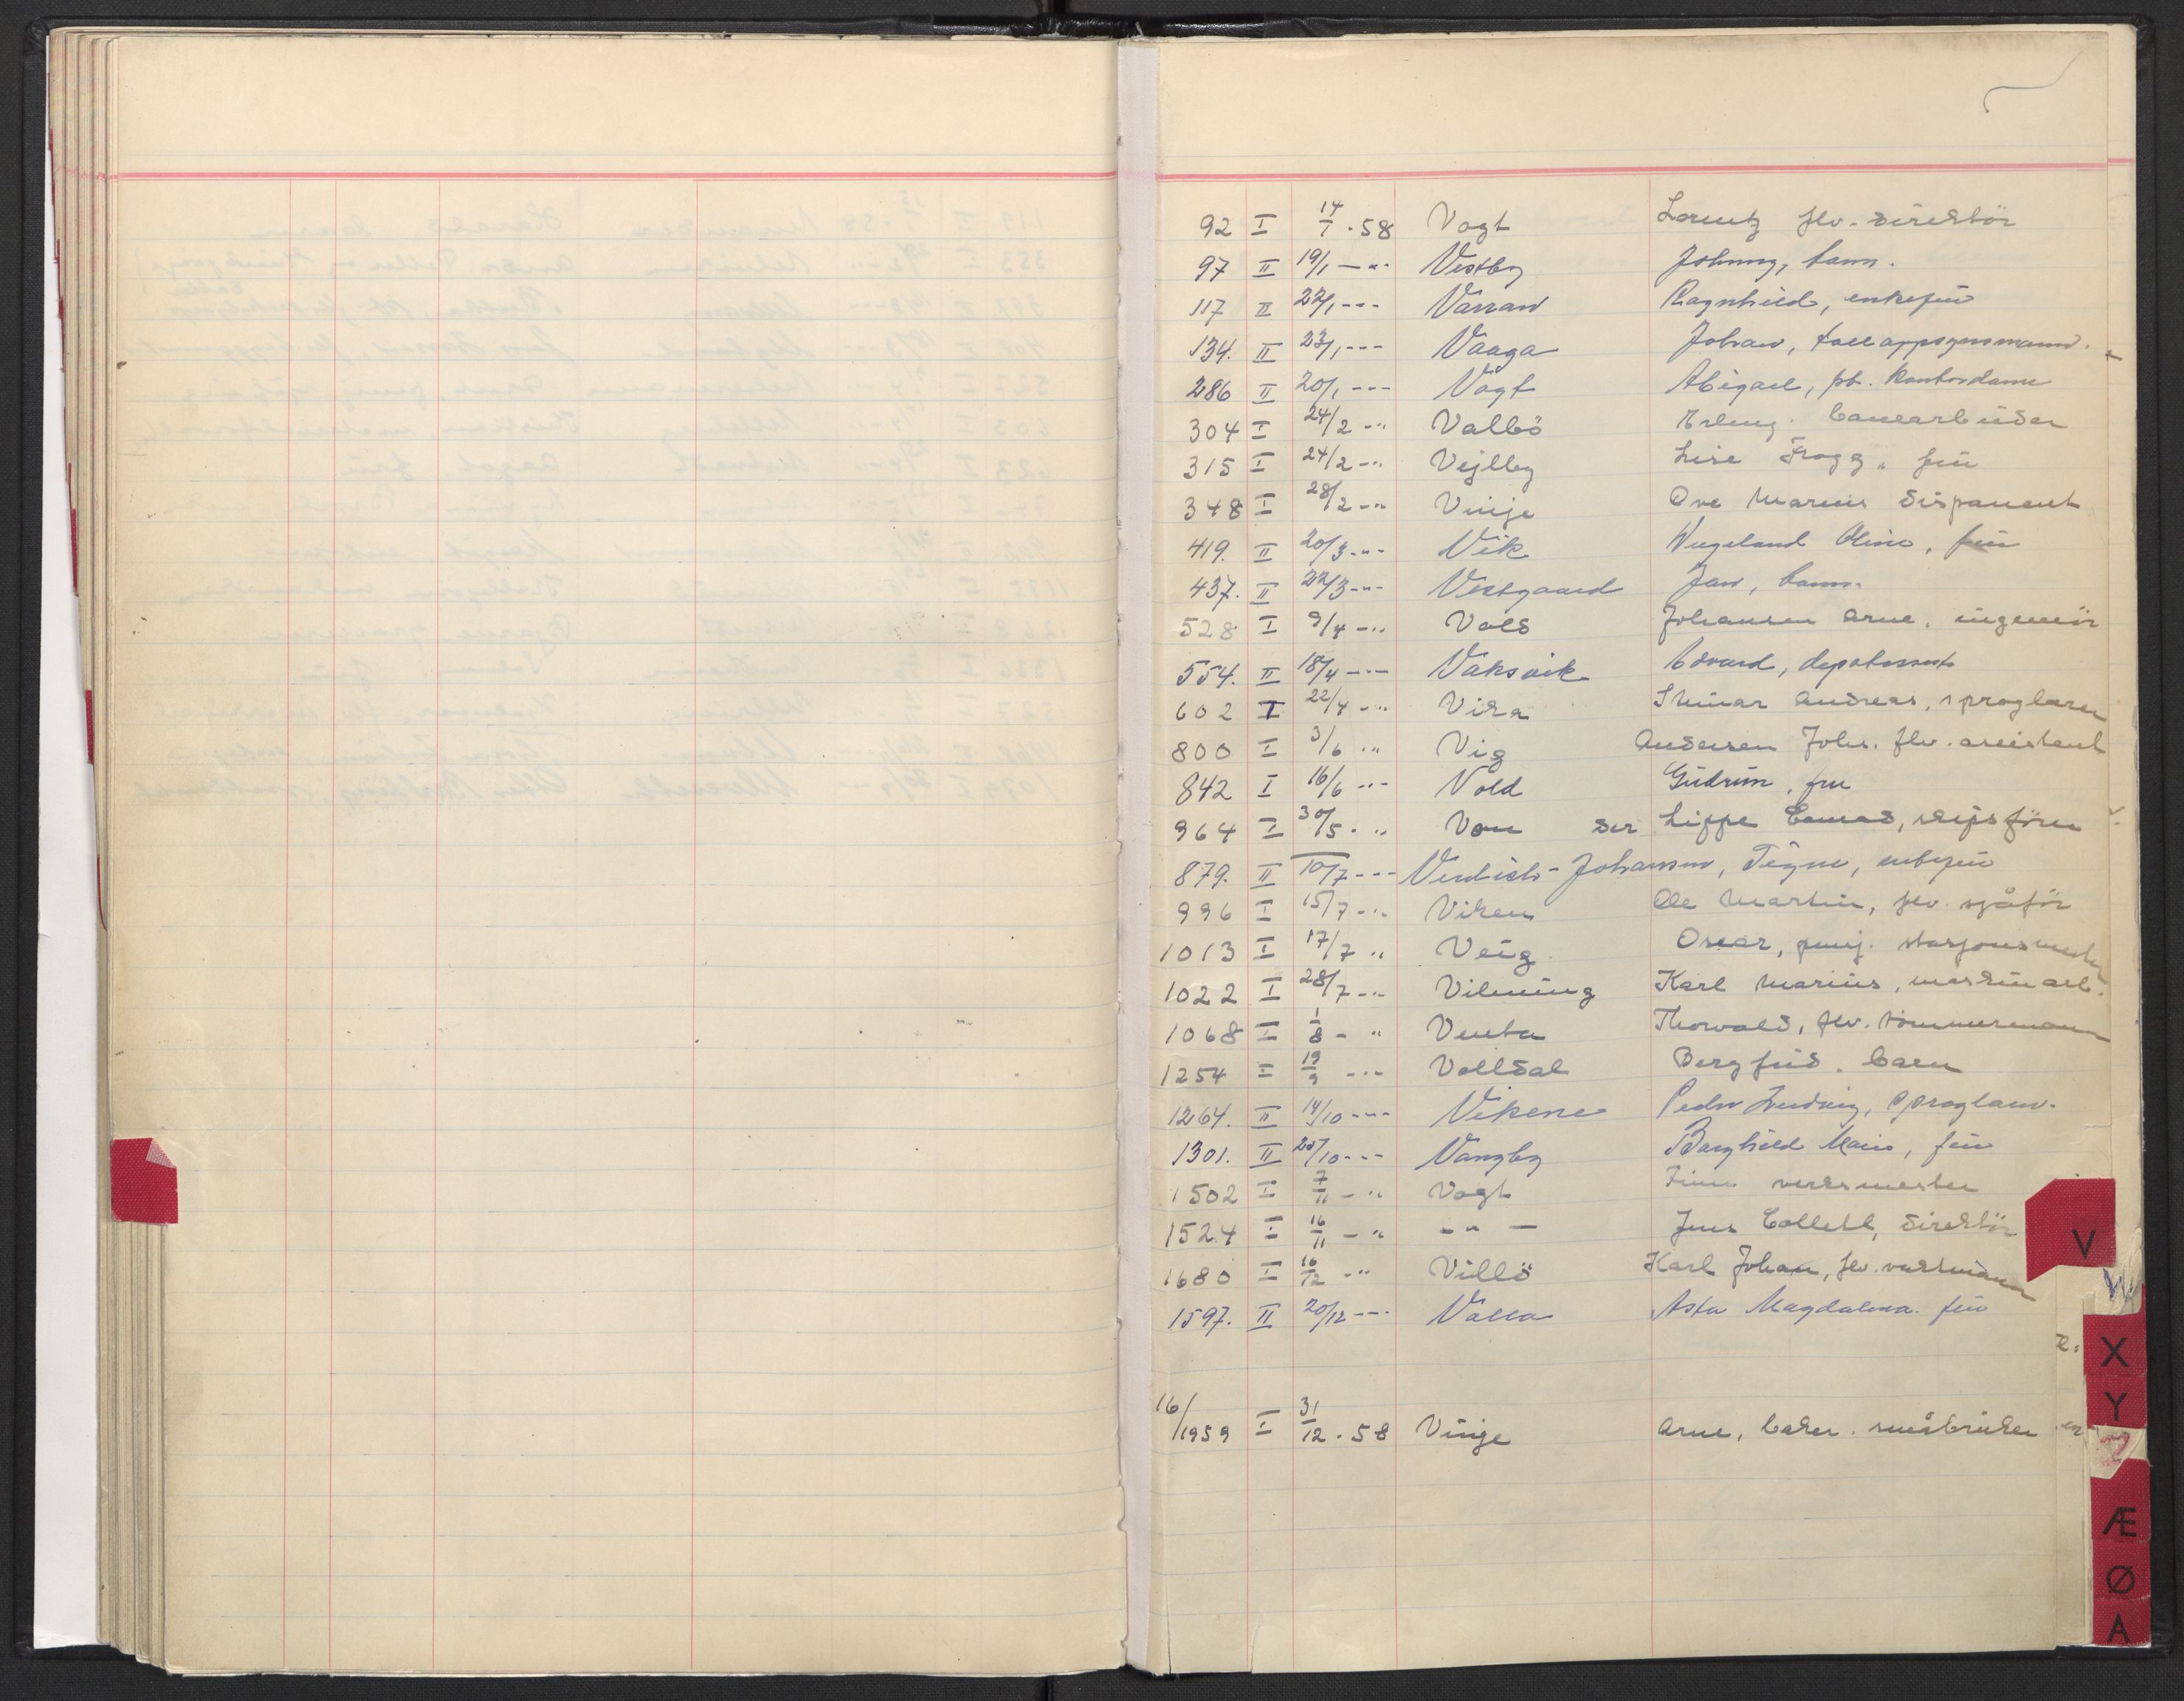 92 I 14/1 . 58 Vogt Lorentz flv. direktör
97 II 19/1 — " - Vestby Johnny, barn.
117 II 22/1 - - - Varran Ragnhild, enkefru
134. II 23/1 - - - Vaaga Johan, tolloppsynsmann.
286 II 20/1 - - - Vogt Abigael, pt. Kontordame
304 I 24/2 - " Valbö Erling. banearbeider
315 I 24/2 - " Vejlby Lise Frogg, fru
348 I 28/2 - " Vinje Ove Marius disponent
419. II 20/3 - " - Vik Wegeland Oline, fru
437. II 22/3 - " - Vestgaard Jan, barn.
528 I 9/4 - " Vold Johansen Arne, ingeniör
554. II 18/4 - - - Vaksvik Edvard,
602 I 22/4 - " Vika Andreas, sproglærer
800 I 3/6 " Vig Andersen Johs. flv. assistent
842 I 16/6 - " - Vold Gudrun, fru
964 I 30/5 - " Von der Lippe Conrad, skipsförer
879. II 10/7 - - - - Johansen, Signe, enkefru
996 I 15/7 - " Viken Ole Martin, flv. sjåför
1013 I 17/7 " Veig Oscar, pensj. stasjonsmester
1022 I 28/7 - " Vilming Karl Marius, maskinarb.
1068 I 1/8 - " Venta Thorvald, flv. tömmermann
1254 I 19/9 - " - Volldal Bergfrid. barn
1264. II 14/10 - " - Vikene Peder Ludvig,
1301. II 20/10 - - - Vangby Borghild Marie, fru
1502 I 7/11 - " Vogt Finn verksmester
1524 I 16/11 - " - " - Jens Collett, direktör
1680 I 16/12 - " Villö Karl Johan, flv. vaktmann
1597. II 20/12 - - - Valla Asta Magdalena. fru
16/1959 I 31/12 . 58 Vinje Arne, baker. småbruker
V
W
X
Y
Æ
Ø
A